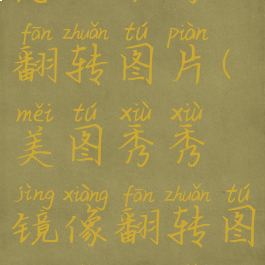 fān zhuǎn tú piàn
翻转图片(
měi tú xiù xiù
美图秀秀
jìng xiàng fān zhuǎn tú
镜像翻转图